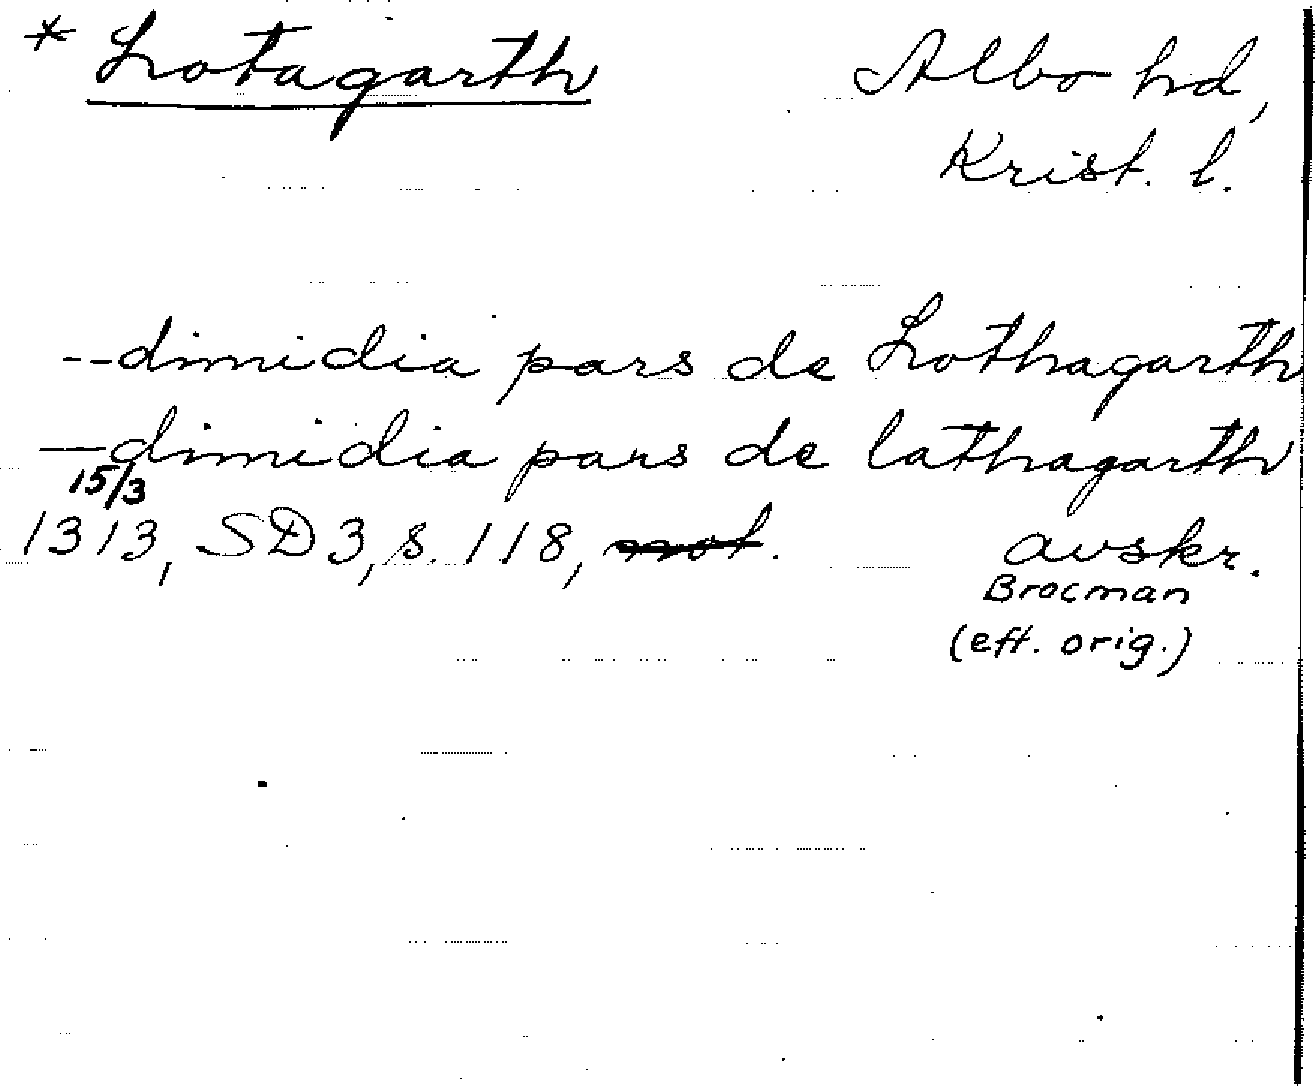 * Lotagarth Albo hd,
Krist. l.
--dimidia pars de Lothagarth
—dimidia pars de lathagarth
15/3
1313, SD3, s. 118, not. avskr.
Brocman
(eft. orig.)